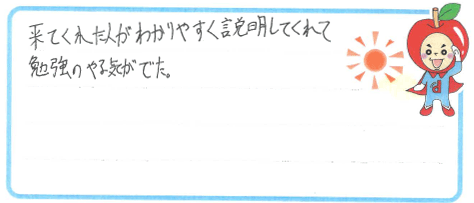 来てくれた人がわかりやすく説明してくれて
勉強のやる気がでた。
d